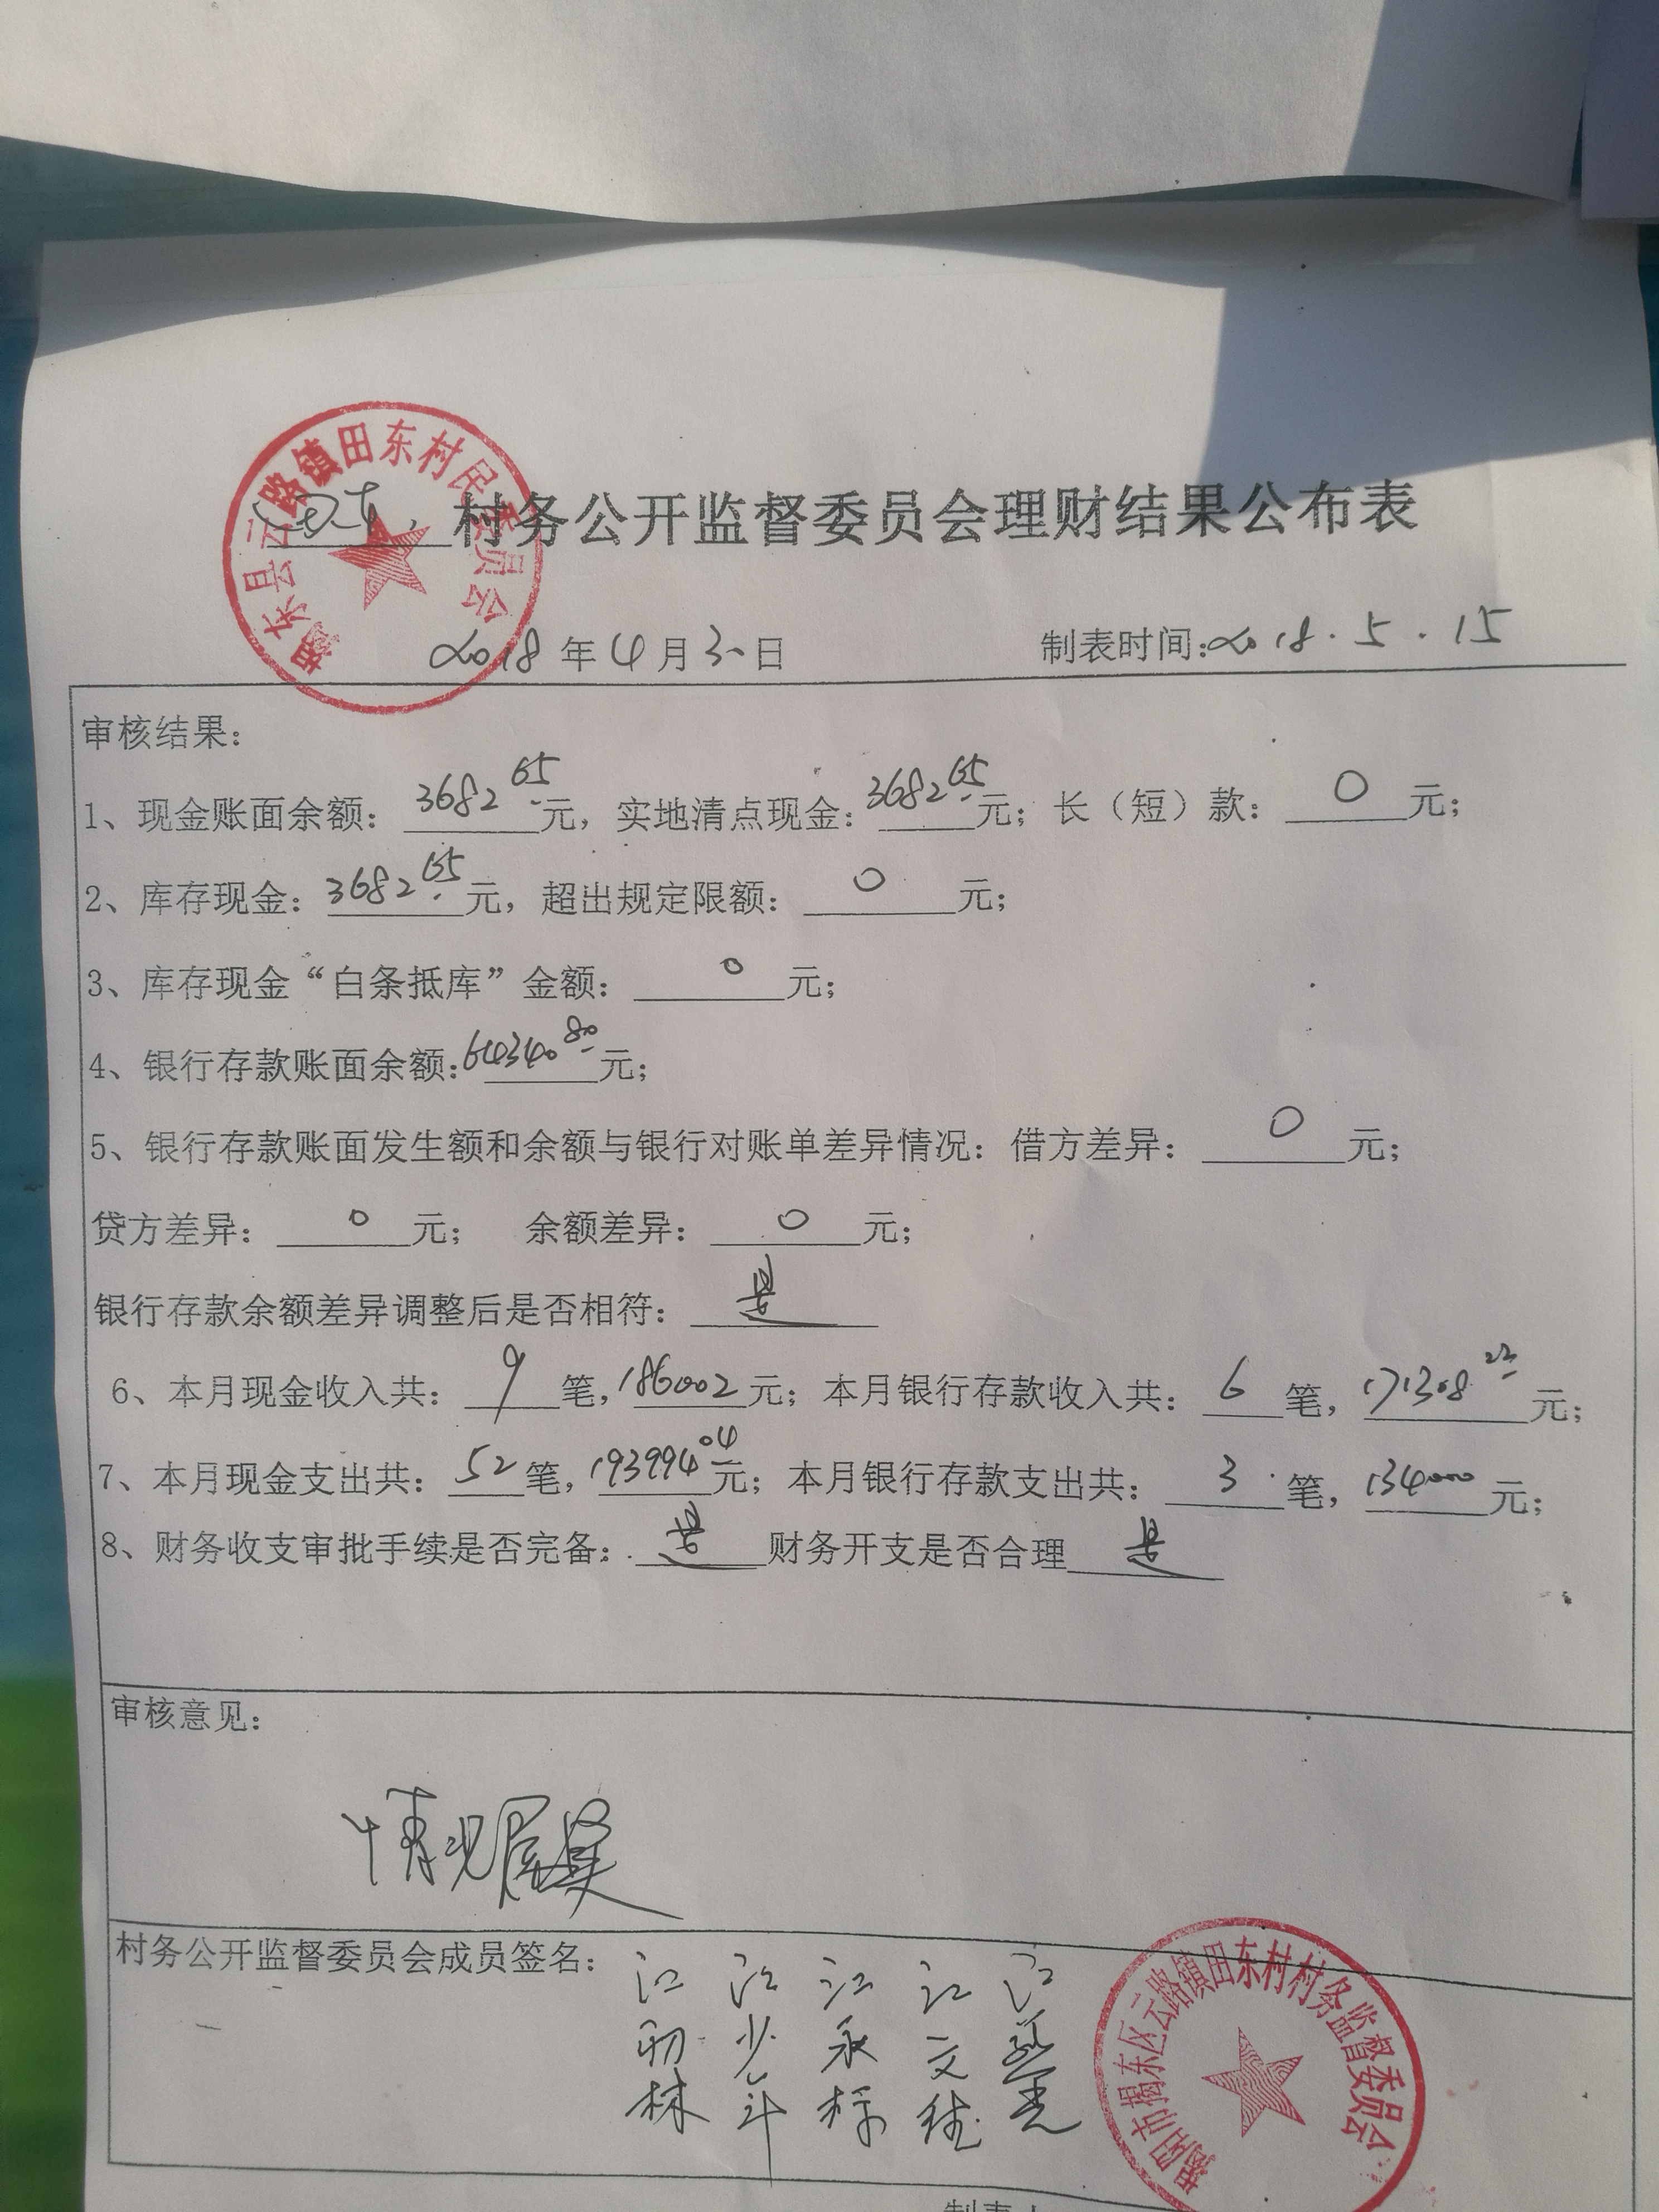 揭东县云路镇田东村民委员会
田东 村务公开监督委员会理财结果公布表
2018年4月30日 制表时间:2018.5.15
审核结果：
1、现金账面余额：3682.65元，实地清点现金：3682.65元；长（短）款：0元；
2、库存现金：3682.65元，超出规定限额：0元；
3、库存现金“白条抵库”金额：0元；
4、银行存款账面余额：64340.80元；
5、银行存款账面发生额和余额与银行对账单差异情况：借方差异：0元；
贷方差异：0元； 余额差异：0元；
银行存款余额差异调整后是否相符：是
6、本月现金收入共：9笔，186002元；本月银行存款收入共：6笔，171308.22元；
7、本月现金支出共：52笔，193994.04元；本月银行存款支出共：3笔，134000元；
8、财务收支审批手续是否完备：是 财务开支是否合理 是
审核意见：
情况属实
村务公开监督委员会成员签名：
江 林
江少年
江永标
江文
江
揭阳市揭东区云路镇田东村村务监督委员会